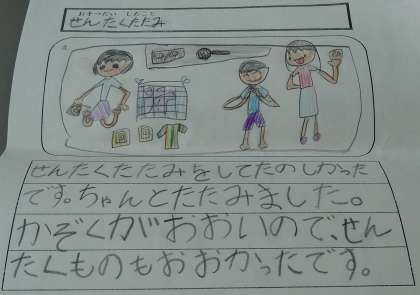 おてつだい したこと
せんたくたたみ
せんたくたたみをしてたのしかった
です。ちゃんとたたみました。
かぞくがおおいので、せん
たくものもおおかったです。